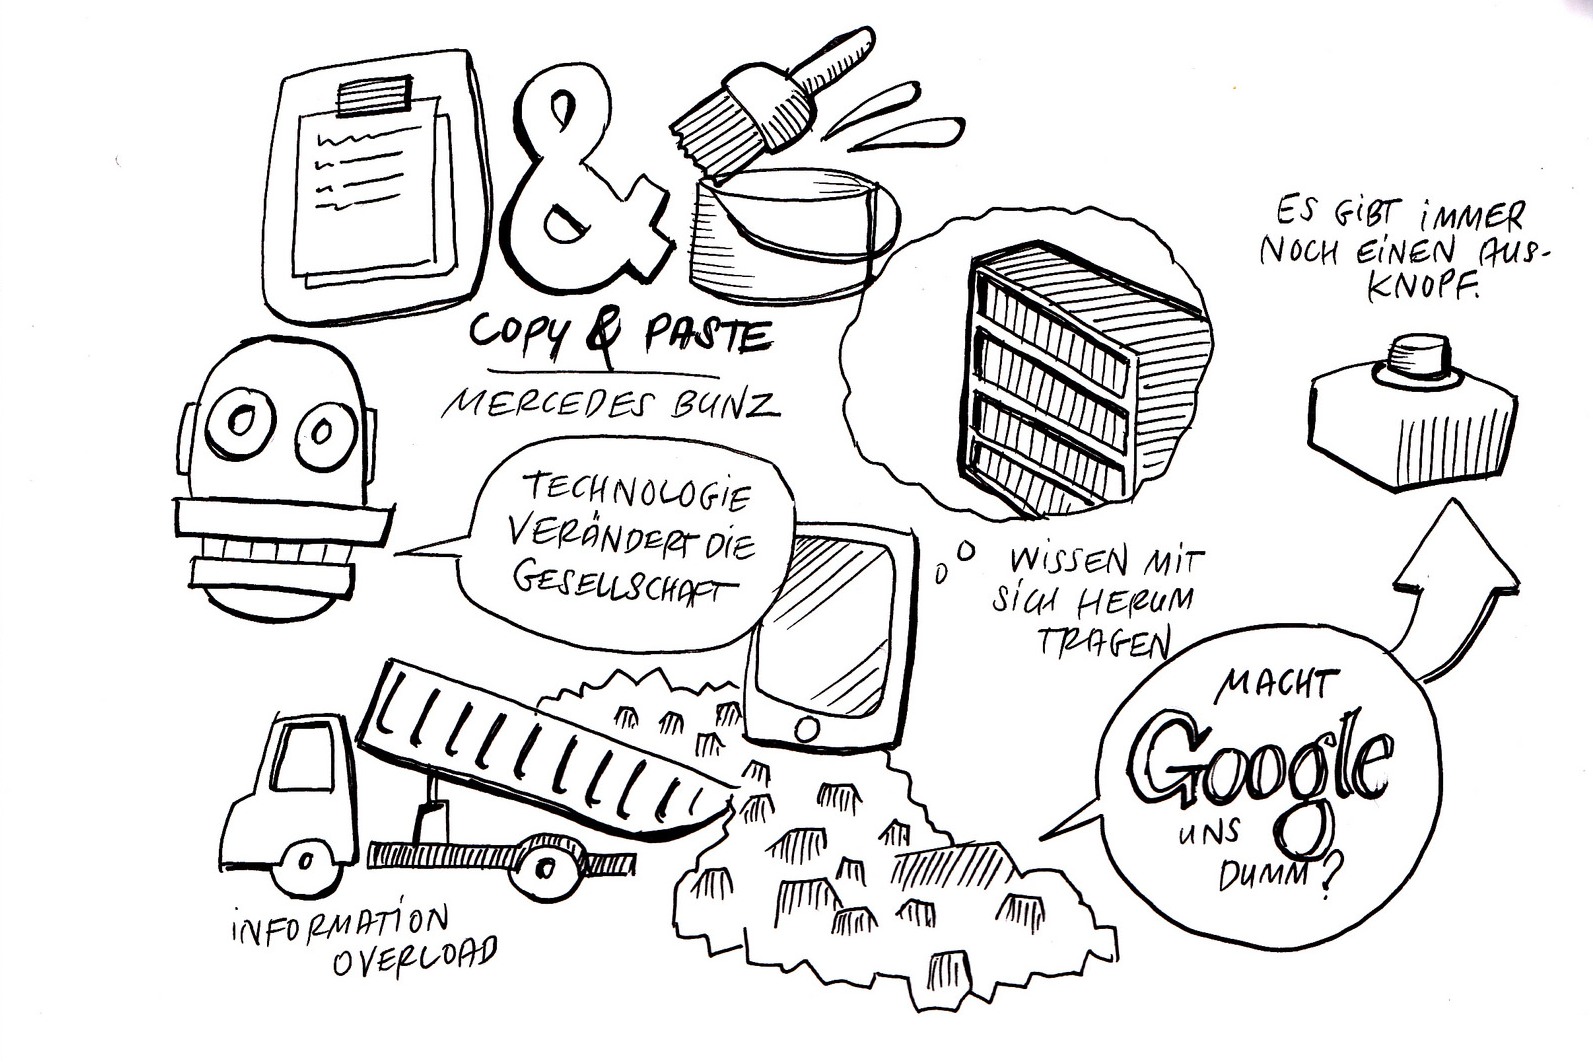 COPY & PASTE
MERCEDES BUNZ
TECHNOLOGIE
VERÄNDERT DIE
GESELLSCHAFT
ES GIBT IMMER
NOCH EINEN AUS-
KNOPF.
WISSEN MIT
SICH HERUM
TRAGEN
MACHT
Google
UNS
DUMM?
INFORMATION
OVERLOAD